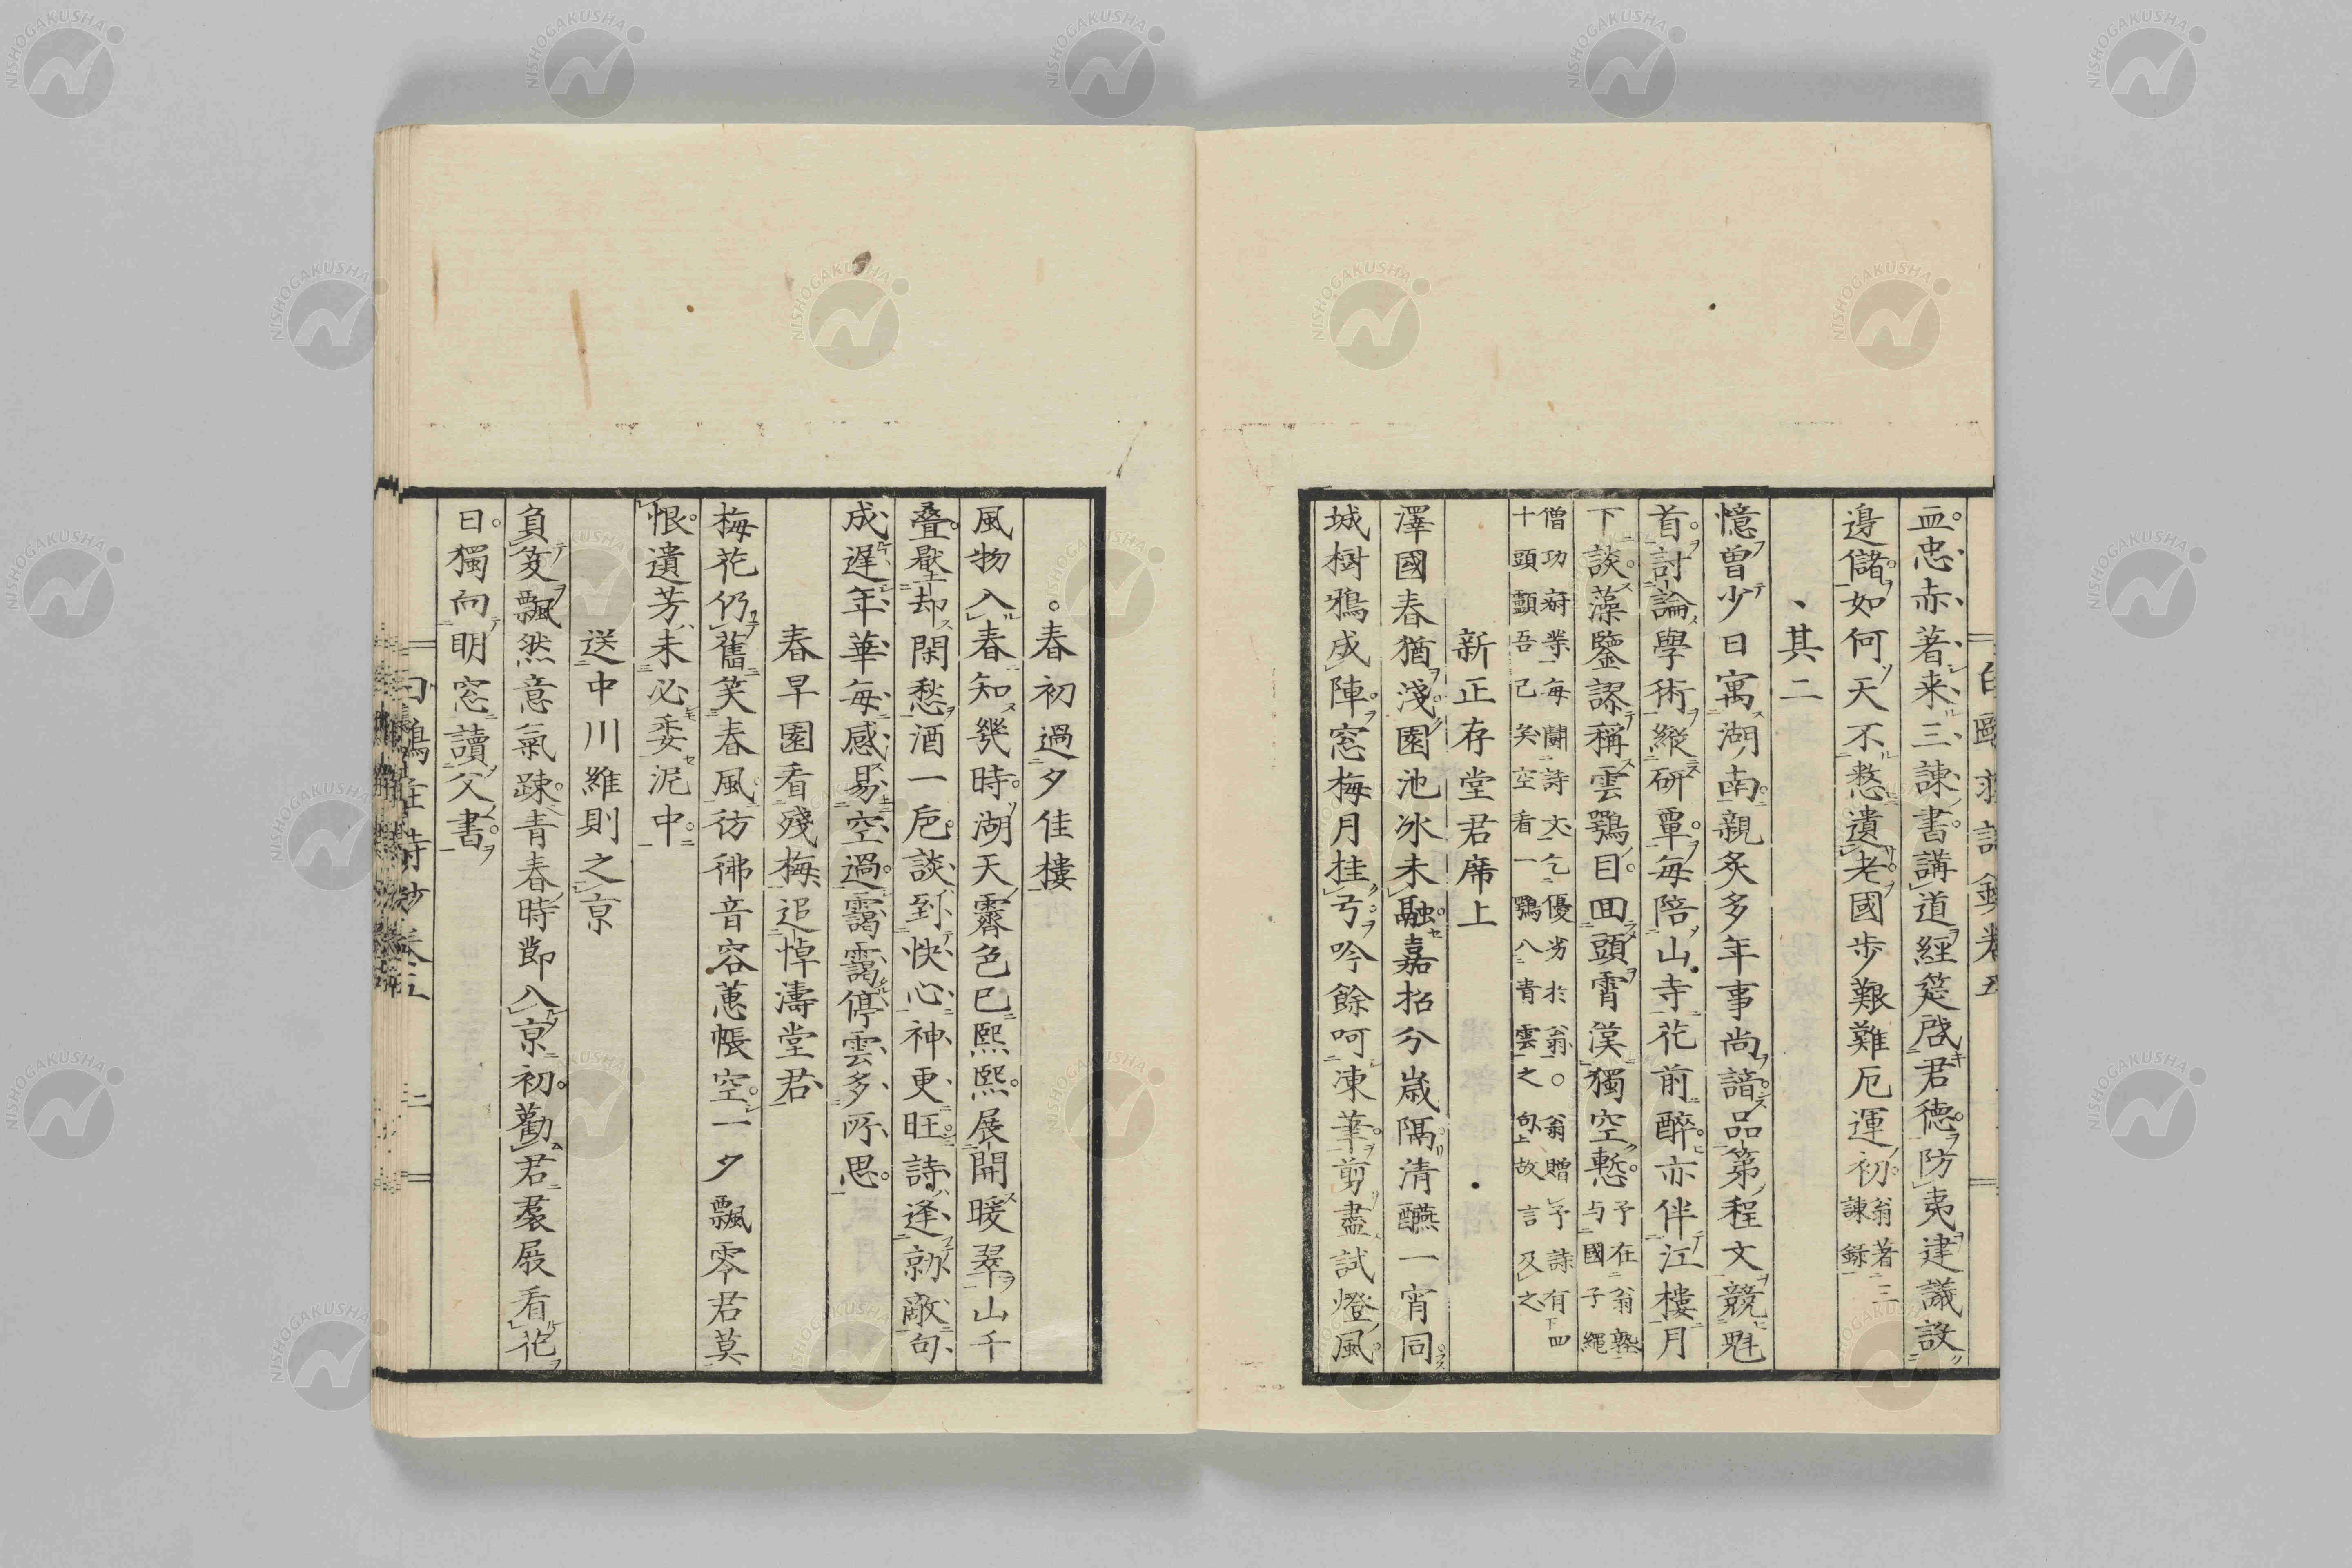 血忠赤著来三諫書講道經筵啓君徳防夷建議設
邊儲如何天不憖遺老國歩艱難厄運初翁著三諫録
其二
憶曽少日寓湖南親炙多年事尚諳品第程文競魁
首討論學術縱研覃毎陪山寺花前醉亦伴江樓月
下談藻鑒謬稱雲鶚目回頭霄漢獨空慙予在翁塾与國子繩
僧功府輩毎闘詩文乞優劣於翁○翁贈予詩有下四
十頭顱吾已矣空看一鶚入青雲之句上故言及之
新正存堂君席上
澤國春猶淺園池冰未融嘉招分歳隔清醼一宵同
城樹鴉成陣窓梅月挂弓吟餘呵凍筆剪盡試燈風
春初過夕佳樓
風物入春知幾時湖天霽色已熙熙展開暖翠山千
疊壓却閑愁酒一巵談到快心神更旺詩逢勍敵句
成遲年華毎感易空過靄靄停雲多所思
春早園看殘梅追悼濤堂君
梅花仍舊笑春風彷彿音容蕙帳空一夕飄零君莫
恨遺芳未必委泥中
送中川維則之京
負笈飄然意氣踈青春時節入京初勸君裠屐看花
日獨向明窓讀父書